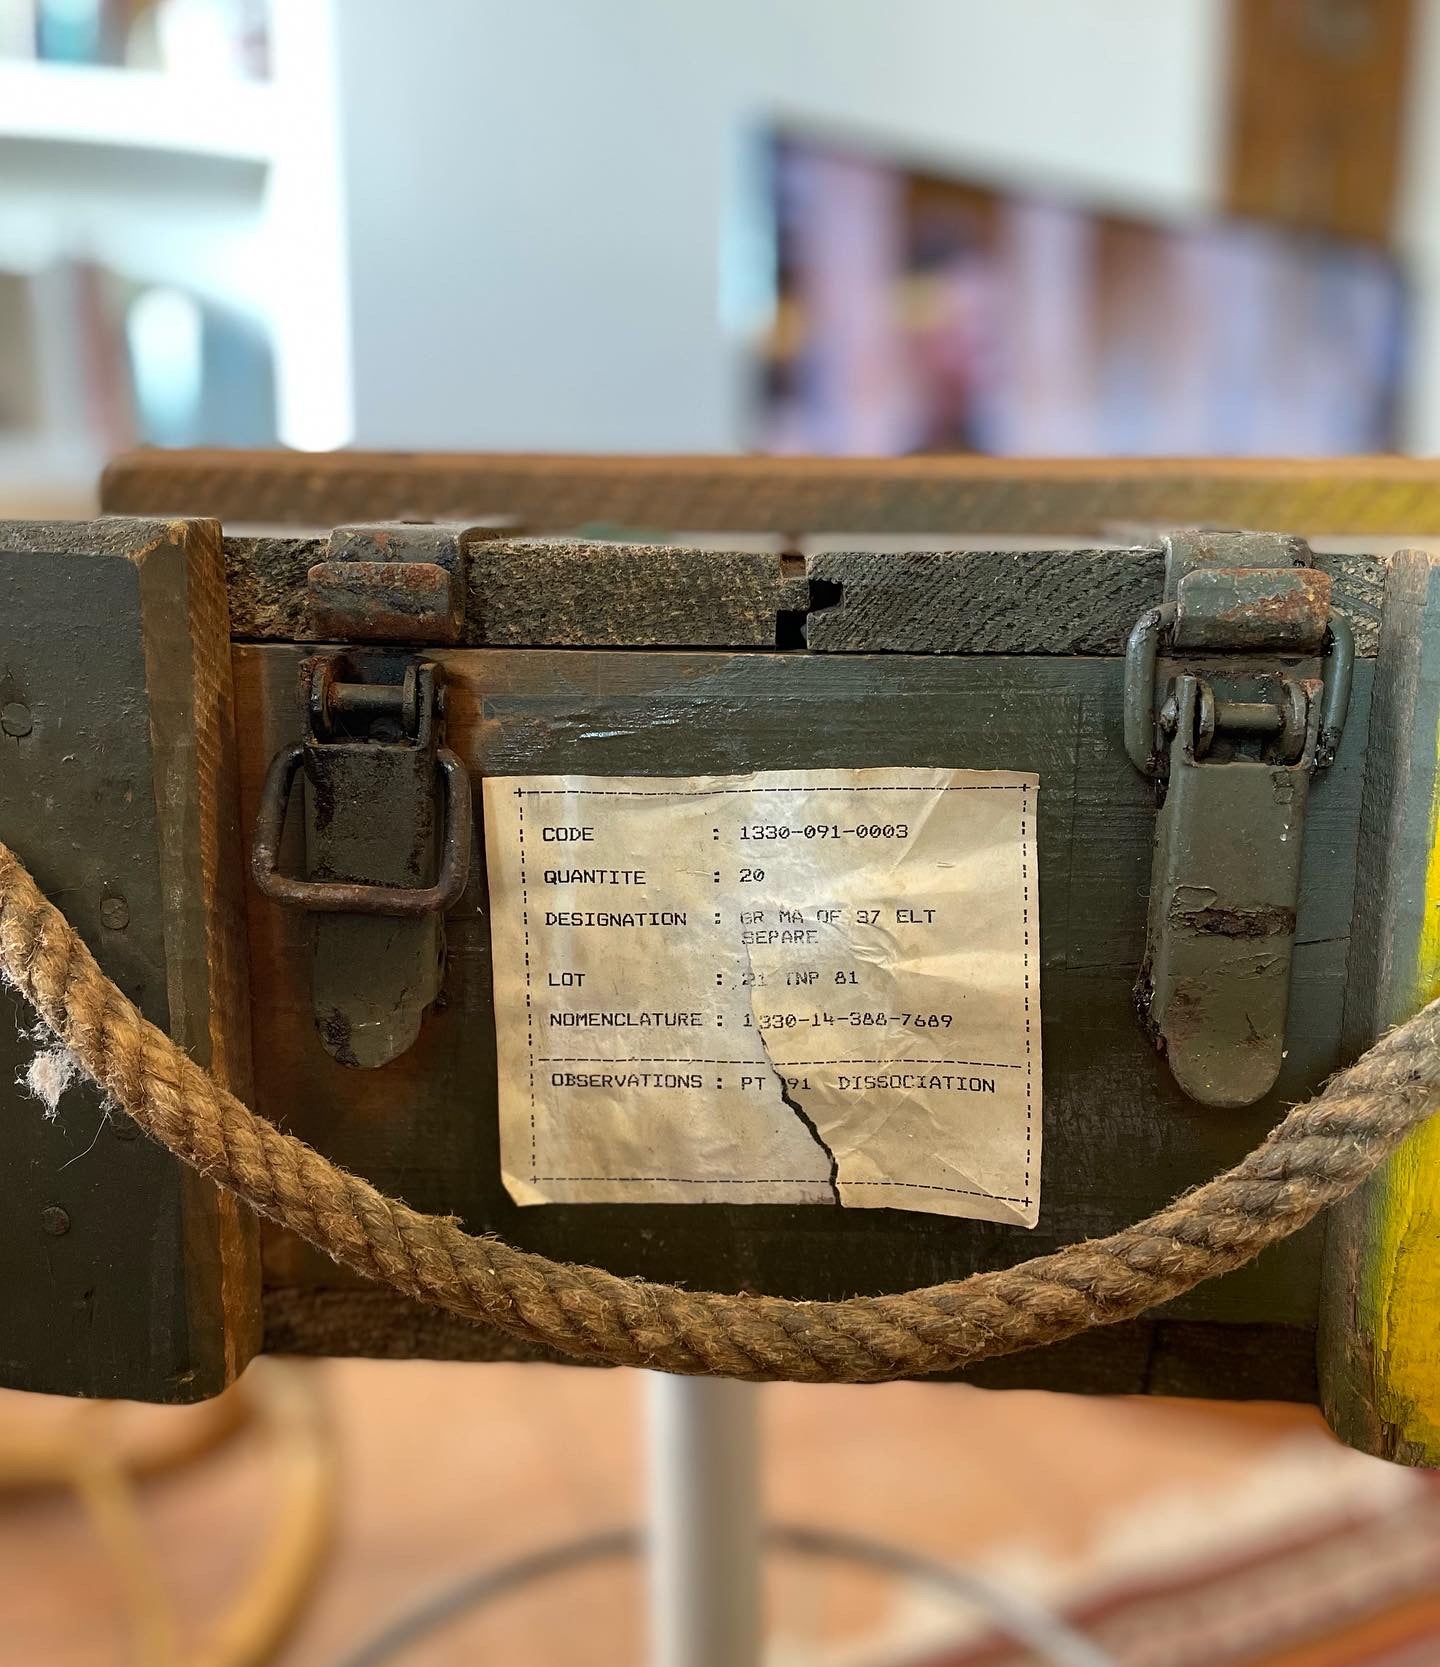 CODE : 1330-091-0003
QUANTITE : 20
DESIGNATION : GR MA OF 37 ELT
SEPARE
LOT : 21 81
NOMENCLATURE : 1330-14-388-7689
OBSERVATIONS : PT 91 DISSOCIATION